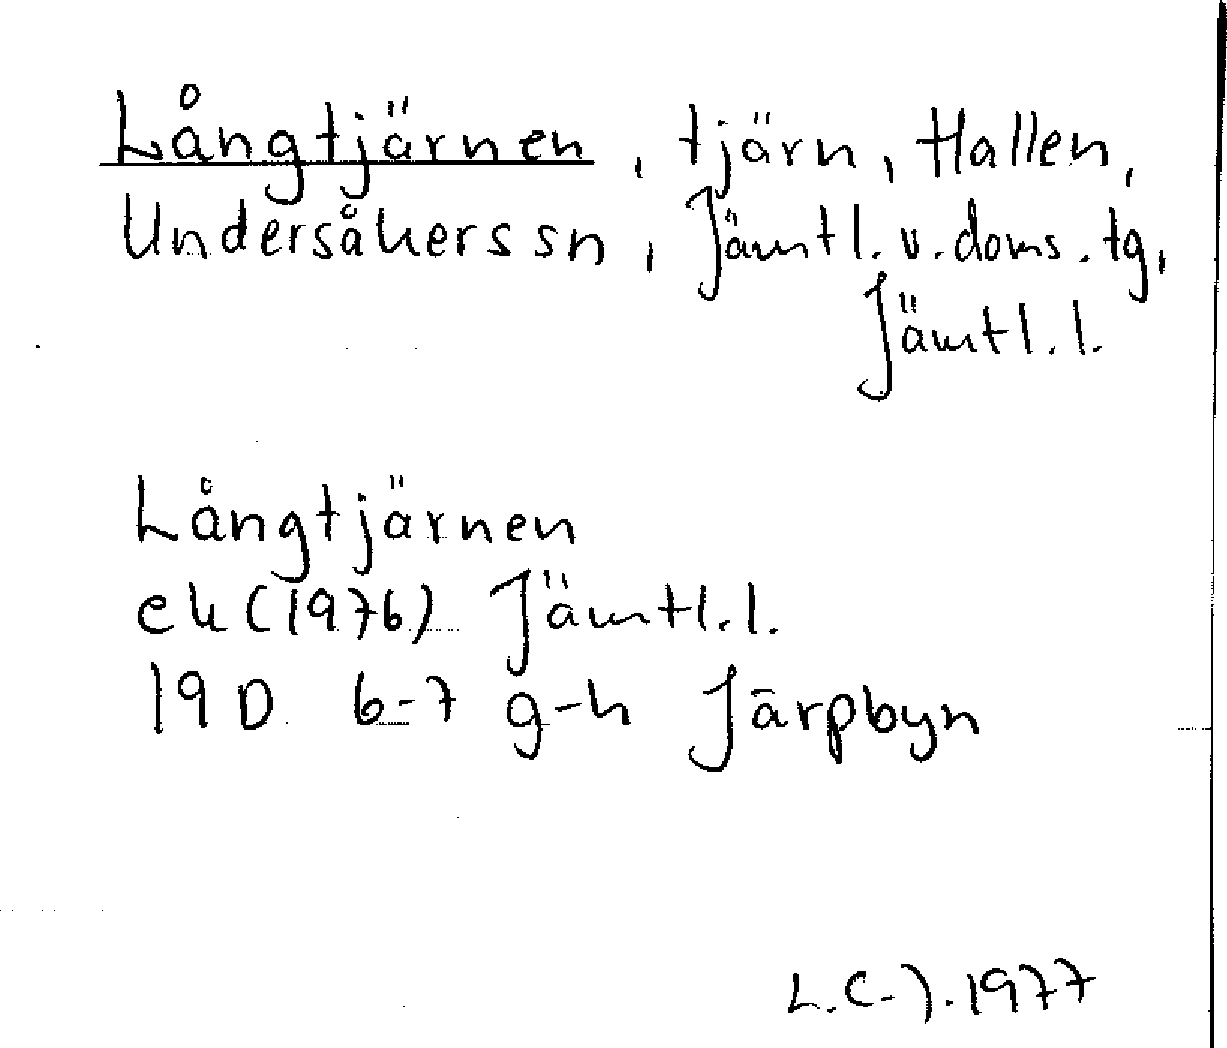 Långtjärnen, tjärn, Hallen,
Undersåkers sn, Jämtl. v. doms. tg,
Jämtl. l.
Långtjärnen
ek (1976) Jämtl. l.
19 D 6-7 g-h Järpbyn
L.C-J. 1977